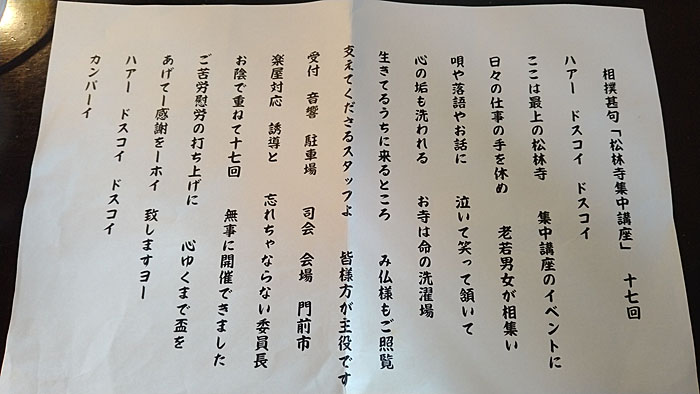 相撲甚句「松林寺集中講座」 十七回
ハアー ドスコイ ドスコイ
ここは最上の松林寺 集中講座のイベントに
日々の仕事の手を休め 老若男女が相集い
唄や落語やお話に 泣いて笑って頷いて
心の垢も洗われる お寺は命の洗濯場
生きてるうちに来るところ み仏様もご照覧
支えてくださるスタッフよ 皆様方が主役です
受付 音響 駐車場 司会 会場 門前市
楽屋対応 誘導と 忘れちゃならない委員長
お陰で重ねて十七回 無事に開催できました
ご苦労慰労の打ち上げに 心ゆくまで盃を
あげてー感謝をーホイ 致しますヨー
ハアー ドスコイ ドスコイ
カンパーイ